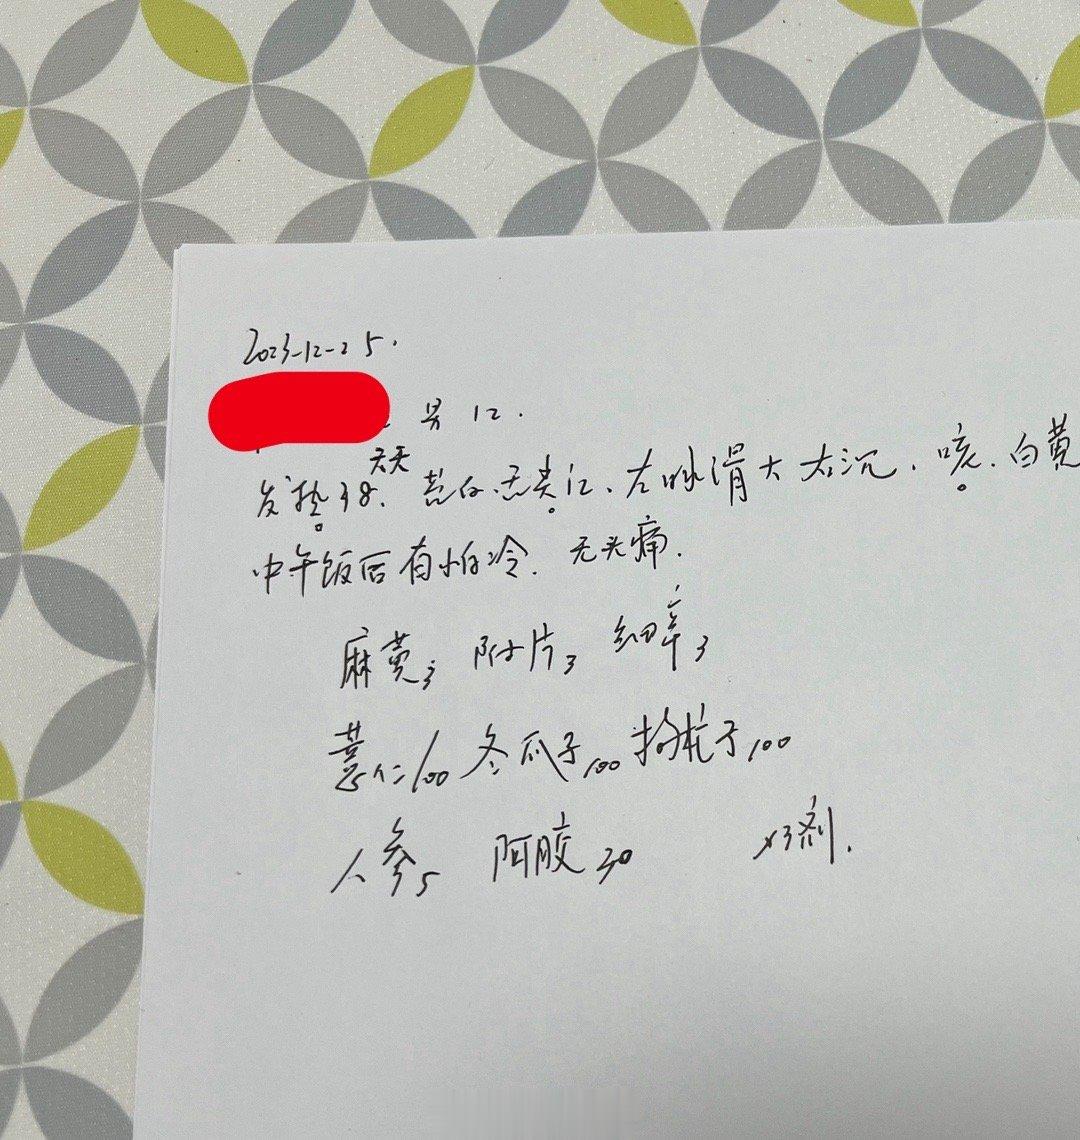 2023-12-25.
男 12.
天天
发热38. 苔白.舌尖红、左脉滑大 右沉. 咳. 白黄
中午饭后有怕冷. 无头痛.
麻黄3 附片3 细辛3
薏仁100 冬瓜子100 枸杞子100
人参5 阿胶30 x3剂.